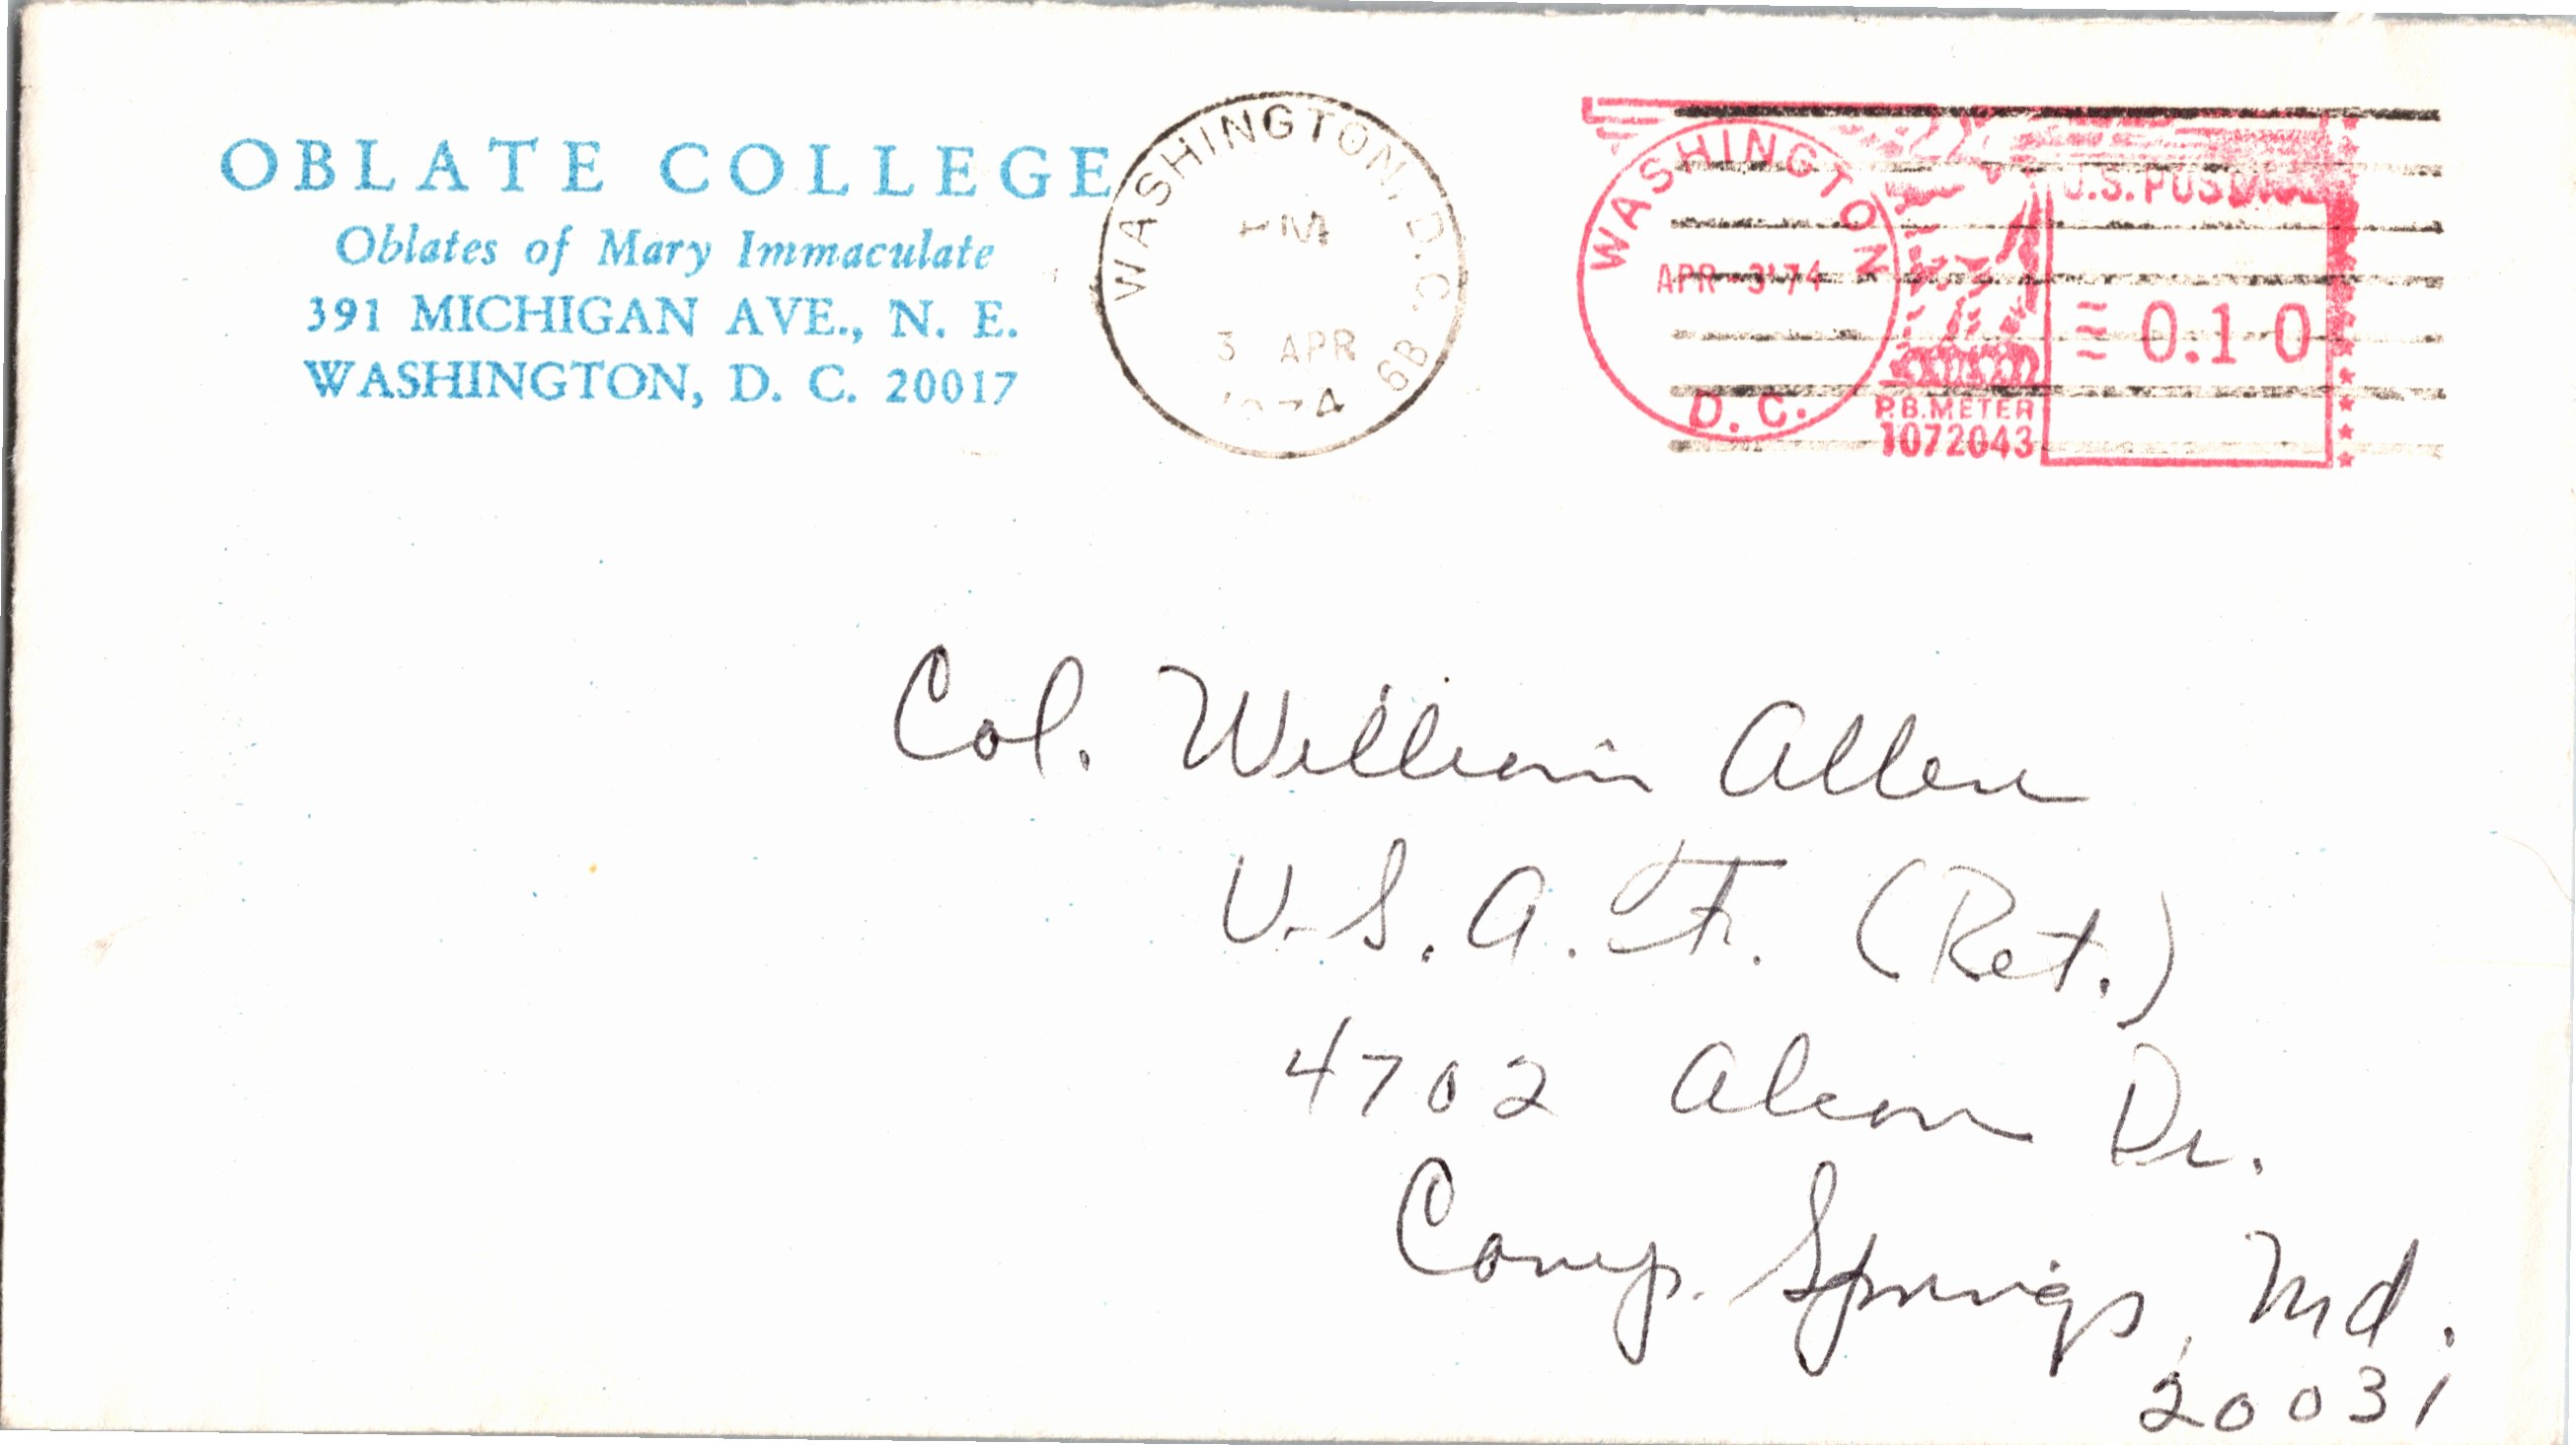 OBLATE COLLEGE
Oblates of Mary Immaculate
391 MICHIGAN AVE., N. E.
WASHINGTON, D. C. 20017
WASHINGTON, D.C. 6B
PM
3 APR
1974
WASHINGTON
APR -3'74
D. C.
P.B. METER
1072043
U.S. POSTAGE
0.10
Col. William Allen
U.S.A.F. (Ret.)
4702 Dr.
Camp Springs, Md.
20031